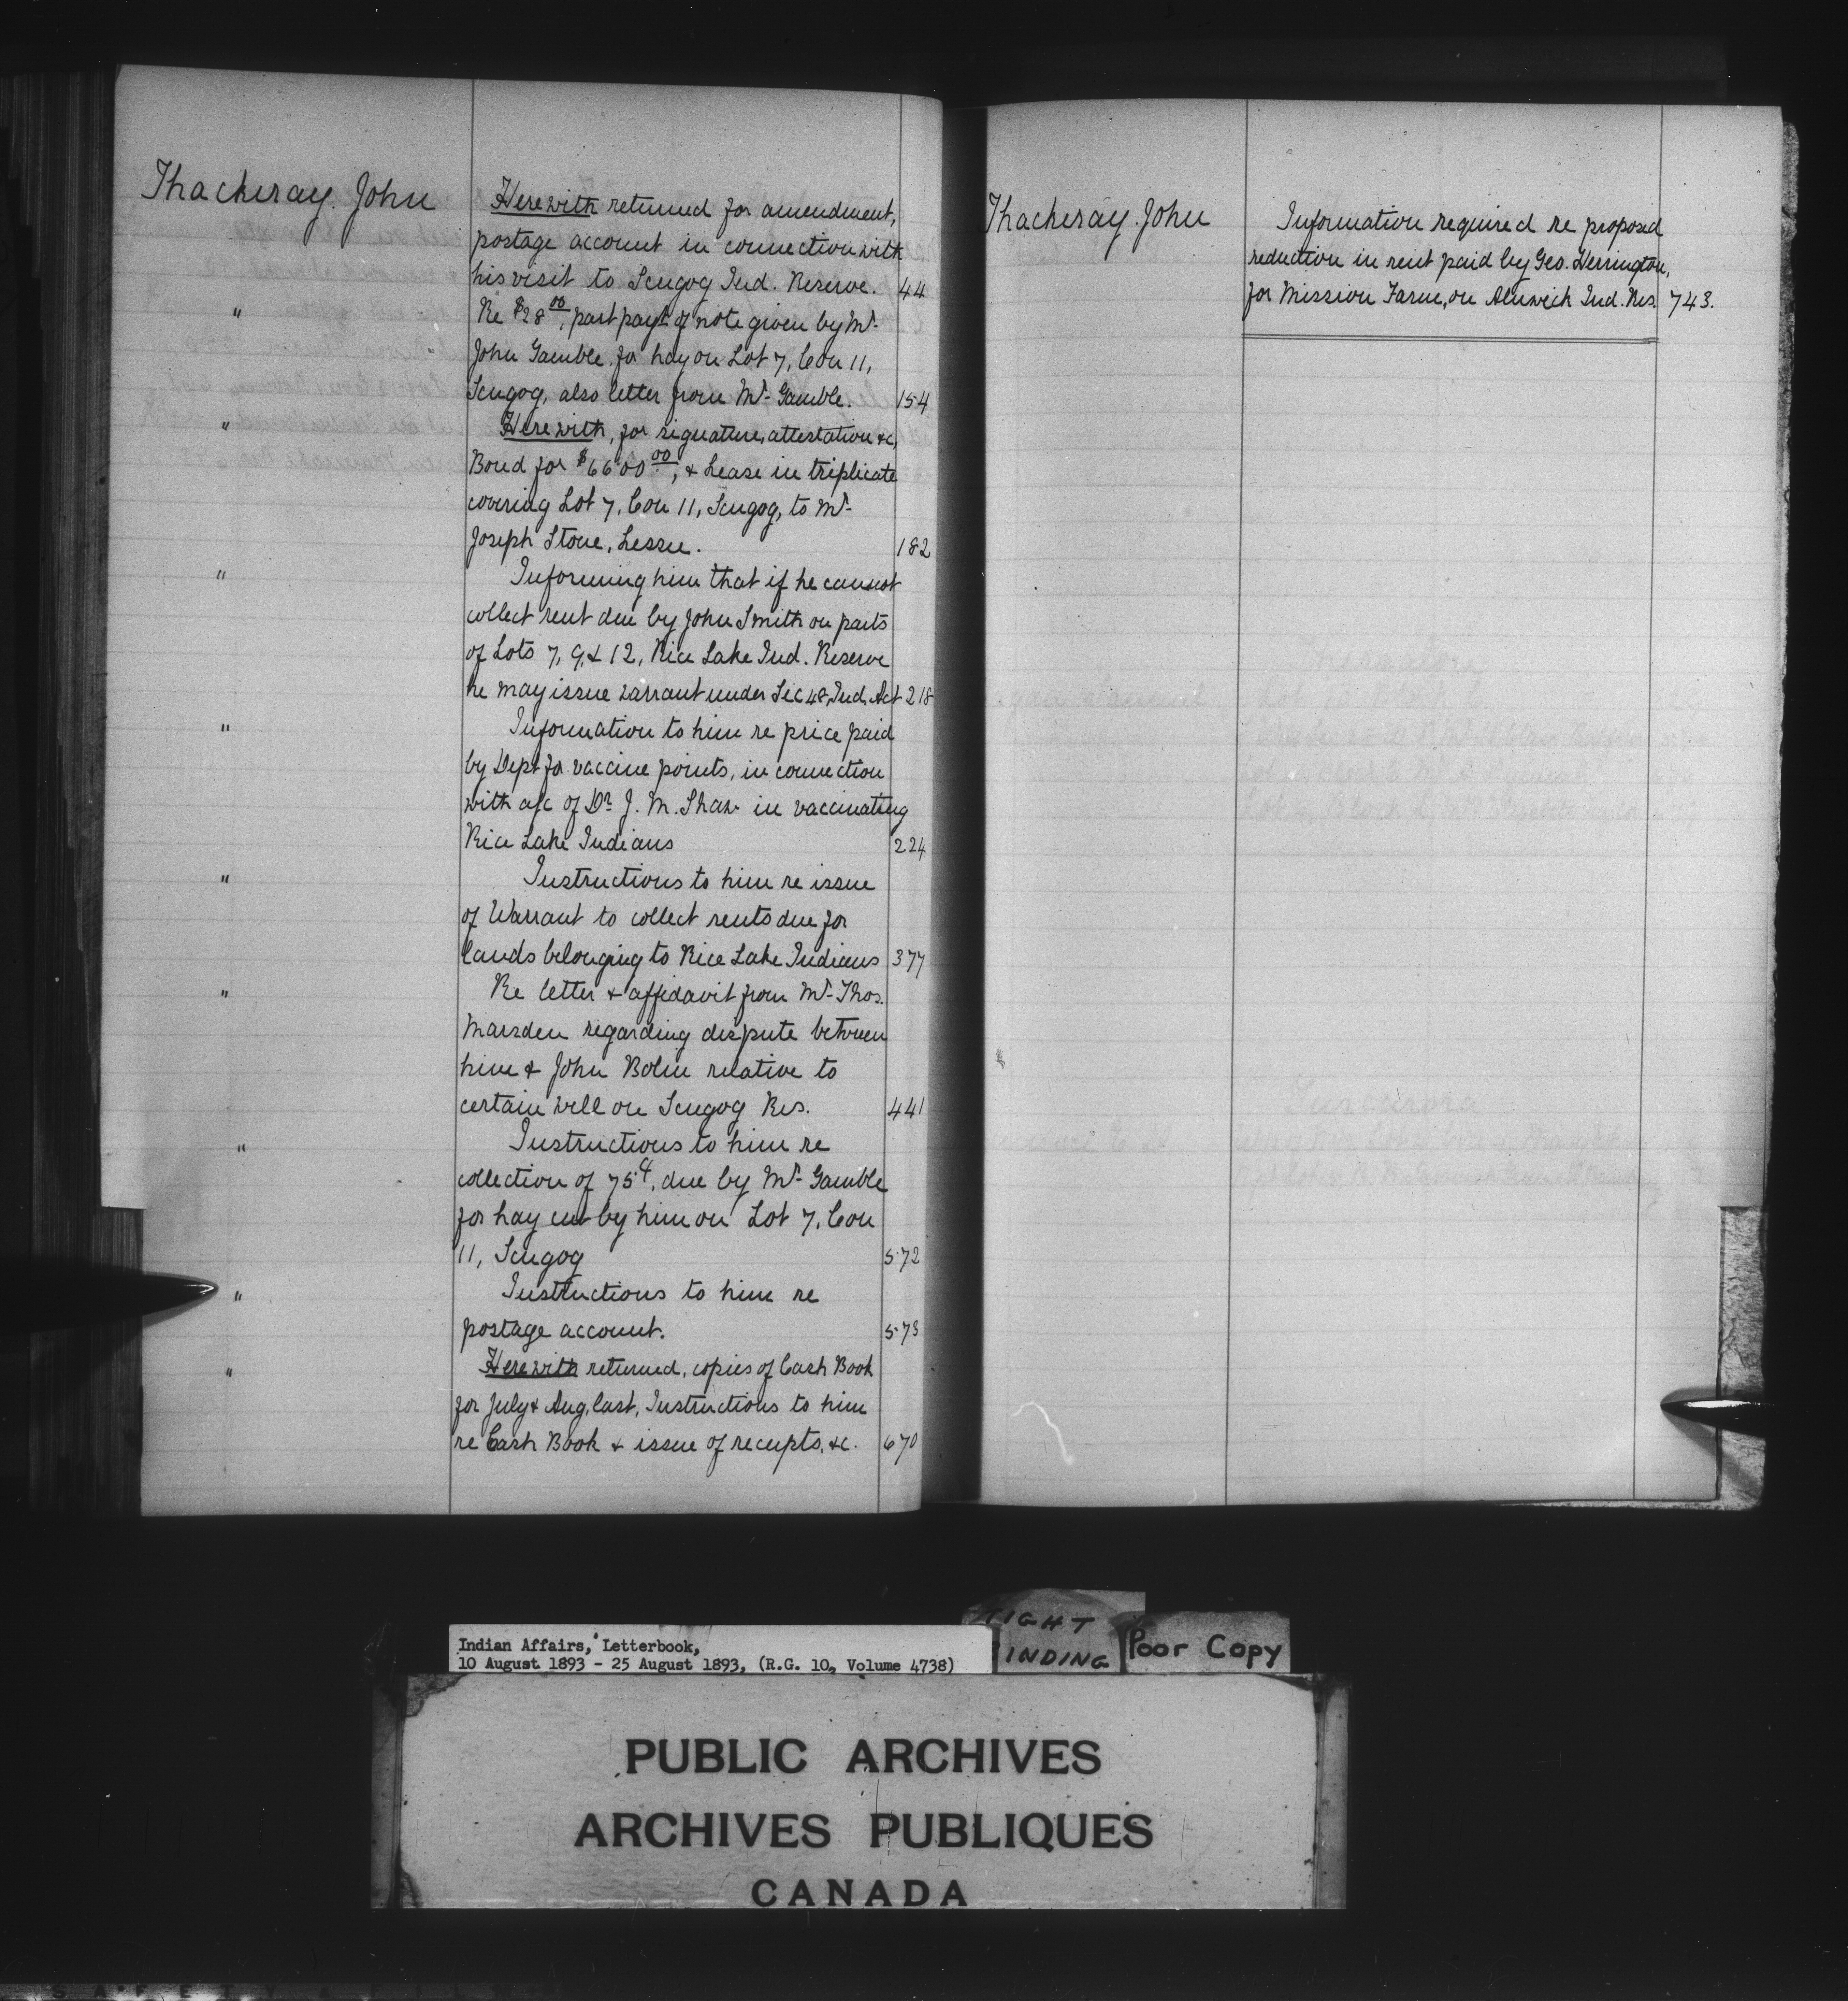 Thackeray. John
Herewith returned for amendment,
postage account in connection with
his visit to Scugog Ind. Reserve. 44
" Re $28.00, part payt of note given by Mr.
John Gamble for hay on Lot 7, Con 11,
Scugog, also letter from Mr. Gamble. 154
" Herewith, for signature, attestation &c,
Bond for $6600.00, & Lease in triplicate
covering Lot 7, Con 11, Scugog, to Mr.
Joseph Stone, Lessee. 182
" Informing him that if he cannot
collect rent due by John Smith on parts
of Lots 7, 9, & 12, Rice Lake Ind. Reserve
he may issue warrant under Sec 48, Ind. Act 218
" Information to him re price paid
by Dept for vaccine points, in connection
with a/c of Dr. J. M. Shaw in vaccinating
Rice Lake Indians 224
" Instructions to him re issue
of Warrant to collect rents due for
lands belonging to Rice Lake Indians 377
" Re letter & affidavit from Mr. Thos.
Marsden regarding dispute between
him & John Bolin relative to
certain well on Scugog Res. 441
" Instructions to him re
collection of 75¢, due by Mr. Gamble
for hay cut by him on Lot 7, Con
11, Scugog 572
" Instructions to him re
postage account. 573
" Herewith returned, copies of Cash Book
for July & Aug, last, Instructions to him
re Cash Book & issue of receipts, &c. 670
Thackeray. John
Information required re proposed
reduction in rent paid by Geo. Herrington,
for Mission Farm, on Alnwick Ind. Res. 743.
Indian Affairs, Letterbook,
10 August 1893 - 25 August 1893, (R.G. 10, Volume 4738)
TIGHT
BINDING
Poor Copy
PUBLIC ARCHIVES
ARCHIVES PUBLIQUES
CANADA